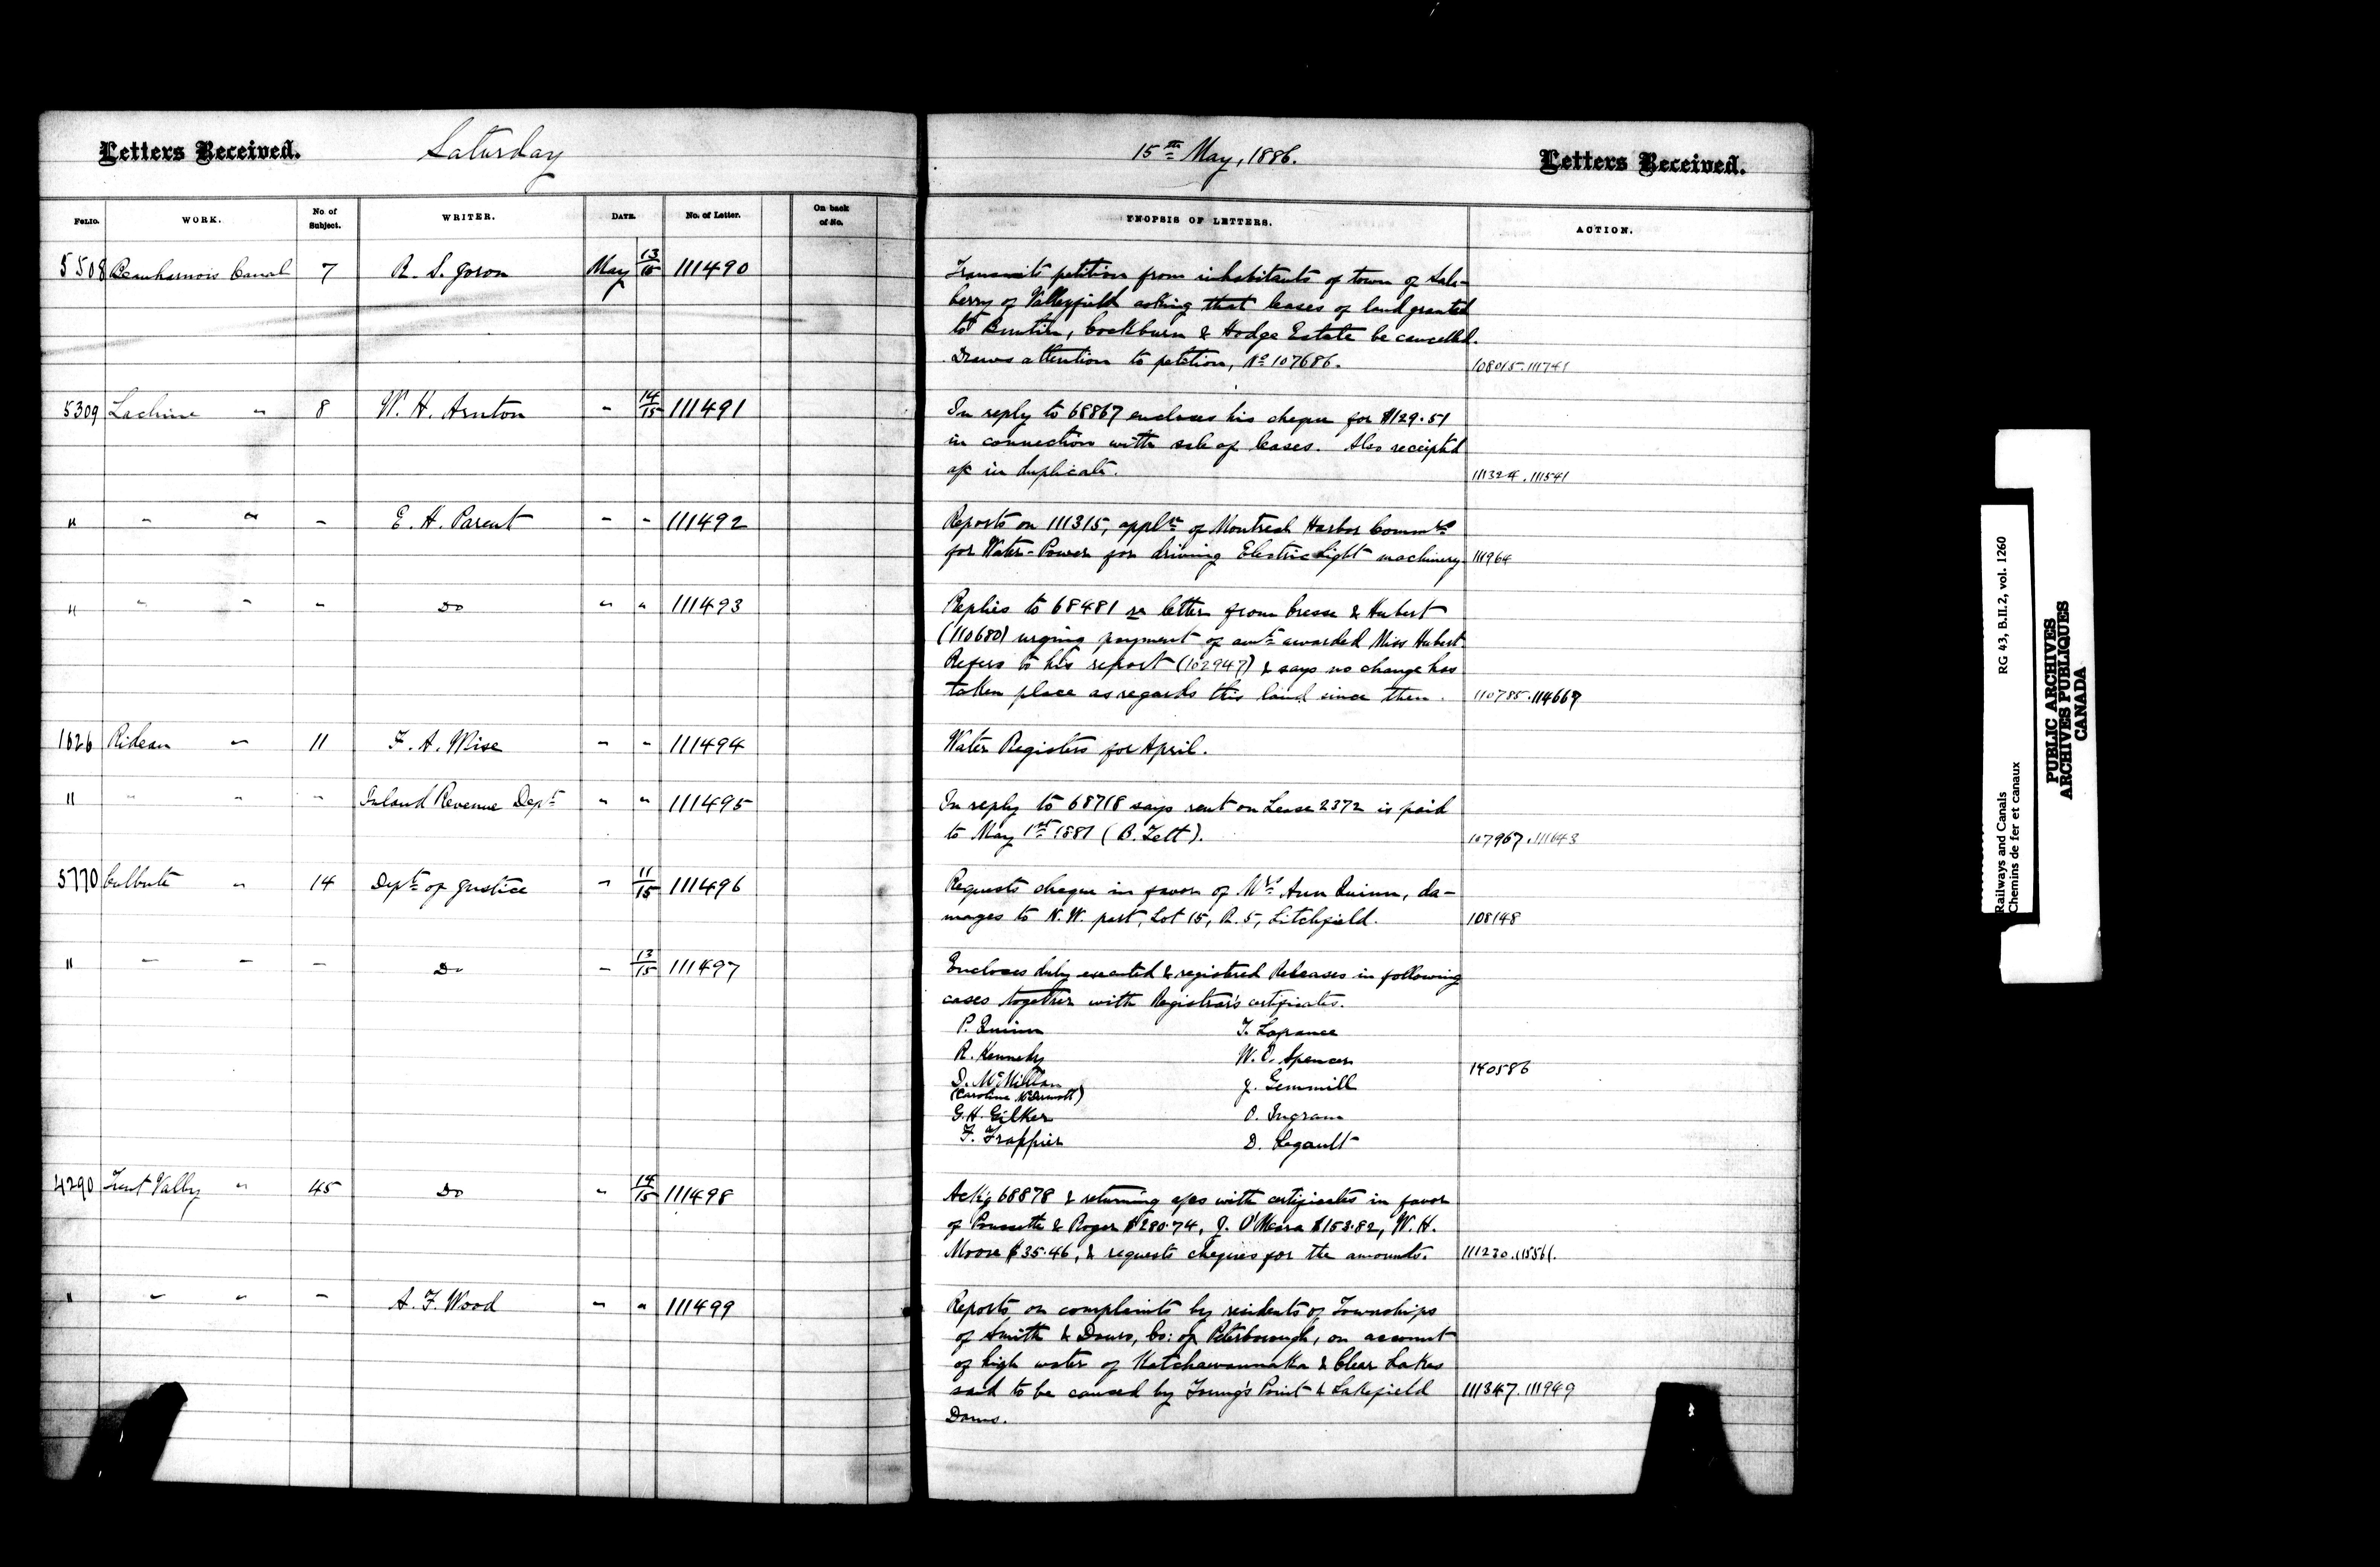 Letters Received. Saturday 15th May, 1886. Letters Received.
FOLIO. WORK. No. of Subject. WRITER. DATE. No. of Letter. On back of No. SYNOPSIS OF LETTERS. ACTION.
5508 Beauharnois Canal 7 R. S. Joron May 13/15 111490
Transmits petition from inhabitants of town of Sala-
berry of Valleyfield asking that leases of land granted
to Buntin, Cockburn & Hodge Estate be cancelled.
Draws attention to petition, No 107686. 108015. 111741
5309 Lachine " 8 W. H. Arnton " 14/15 111491
In reply to 68867 encloses his cheque for $129.51
in connection with sale of leases. Also receipted
a/c in duplicate. 111324. 111541
" " " " E. H. Parent " " 111492
Reports on 111315, appln of Montreal Harbor Commrs
for Water-Power for driving Electric Light machinery. 111964
" " " " Do " " 111493
Replies to 68481 re letter from Cresse & Hubert
(110680) urging payment of amt awarded Miss Hubert.
Refers to his report (102947) & says no change has
taken place as regards this land since then. 110785. 114667
1626 Rideau " 11 F. A. Wise " " 111494
Water Registers for April.
" " " " Inland Revenue Dept " " 111495
In reply to 68718 says rent on Lease 2372 is paid
to May 1st 1887 (B. Tett). 107967. 111643
5770 Culbute " 14 Dept of Justice " 11/15 111496
Requests cheque in favor of Mrs Ann Quinn, da-
mages to N.W. part, Lot 15, R. 5, Litchfield. 108148
" " " " Do " 13/15 111497
Encloses duly executed & registered Releases in following
cases together with Registrar's certificates.
P. Quinn T. Lafrance
R. Kennedy W. O. Spencer
140586
D. McMillan J. Gemmill
(Caroline McDermott)
G. H. Gilker O. Ingram
F. Frappier D. Legault
4290 Trent Valley " 45 Do " 14/15 111498
Ackg 68878 & returning a/cs with certificates in favor
of Poussette & Roger $280.74, J. O'Meara $153.82, W. H.
Moore $35.46, & requests cheques for the amounts. 111230. 115561.
" " " " A. F. Wood " " 111499
Reports on complaints by residents of Townships
of Smith & Douro, Co: of Peterborough, on account
of high water of Katchawannaka & Clear Lakes
said to be caused by Young's Point & Lakefield 111347. 111949
Dams.
Railways and Canals RG 43, B.II.2, vol. 1260
Chemins de fer et canaux
PUBLIC ARCHIVES
ARCHIVES PUBLIQUES
CANADA